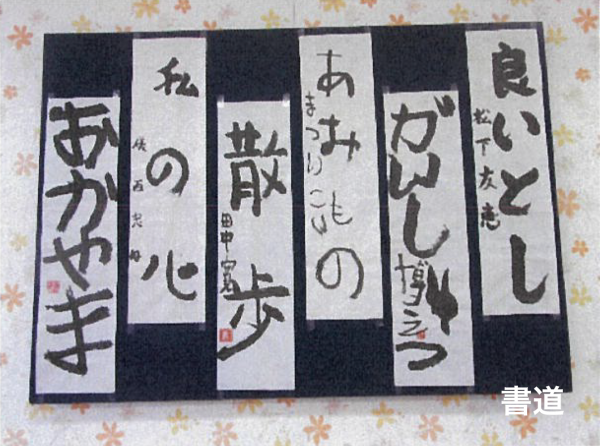 良いとし
松下友恵
がんしょう
博之
あみもの
まつりこい
散歩
田中
私の心
おかやま
書道